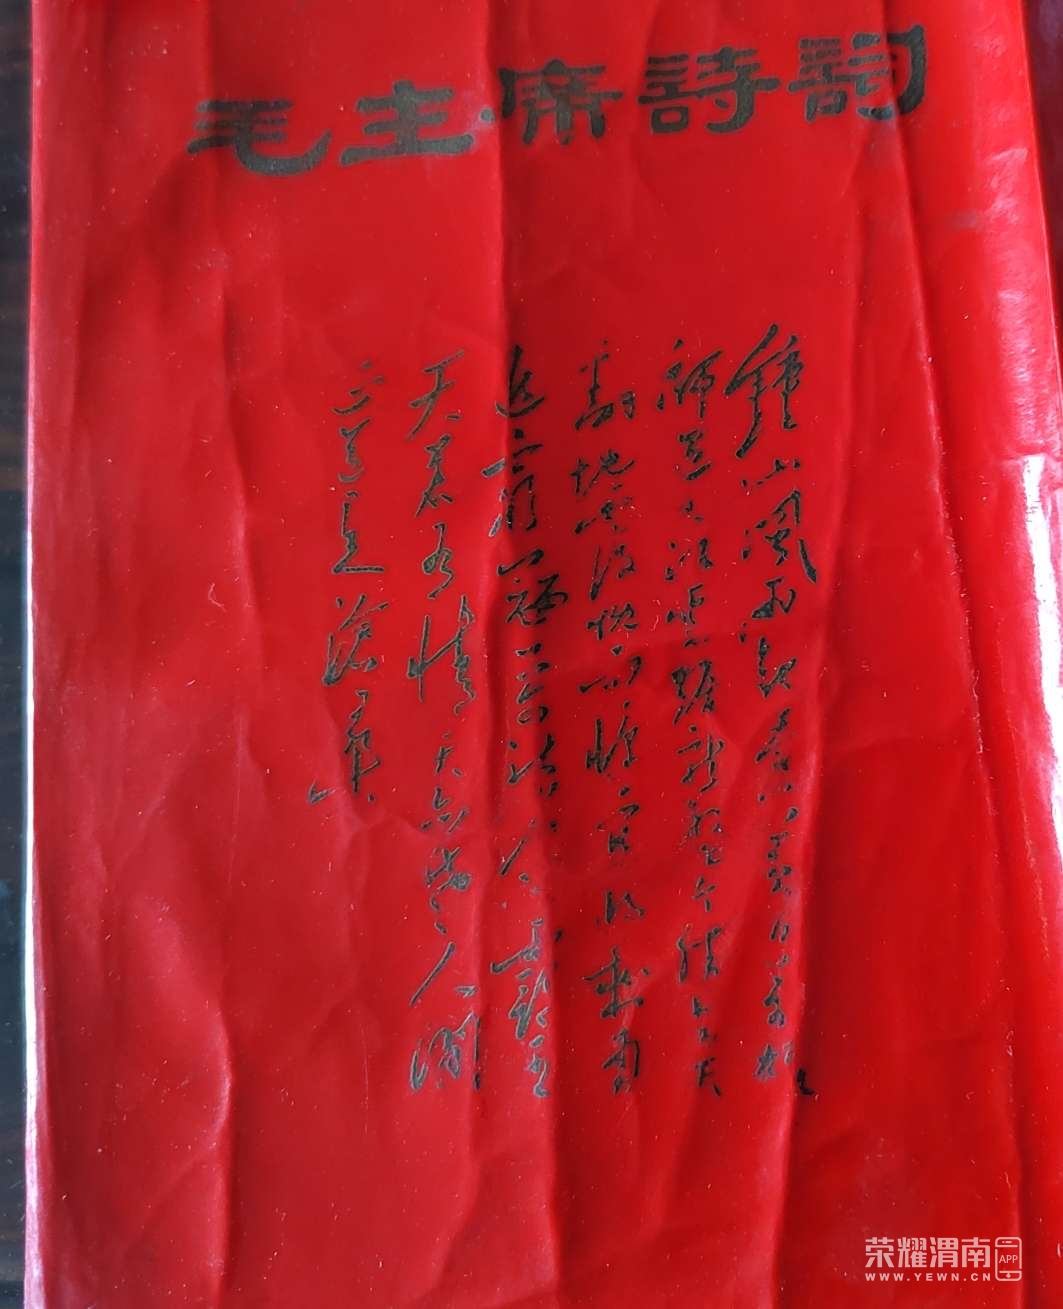 毛主席詩詞
鍾山風雨起蒼黃百萬雄
師過大江虎踞龍盤今勝昔天
翻地覆慨而慷宜將剩勇
追窮寇不可沽名學霸王
天若有情天亦老人間
正道是滄桑
荣耀渭南 APP
WWW.YEWN.CN